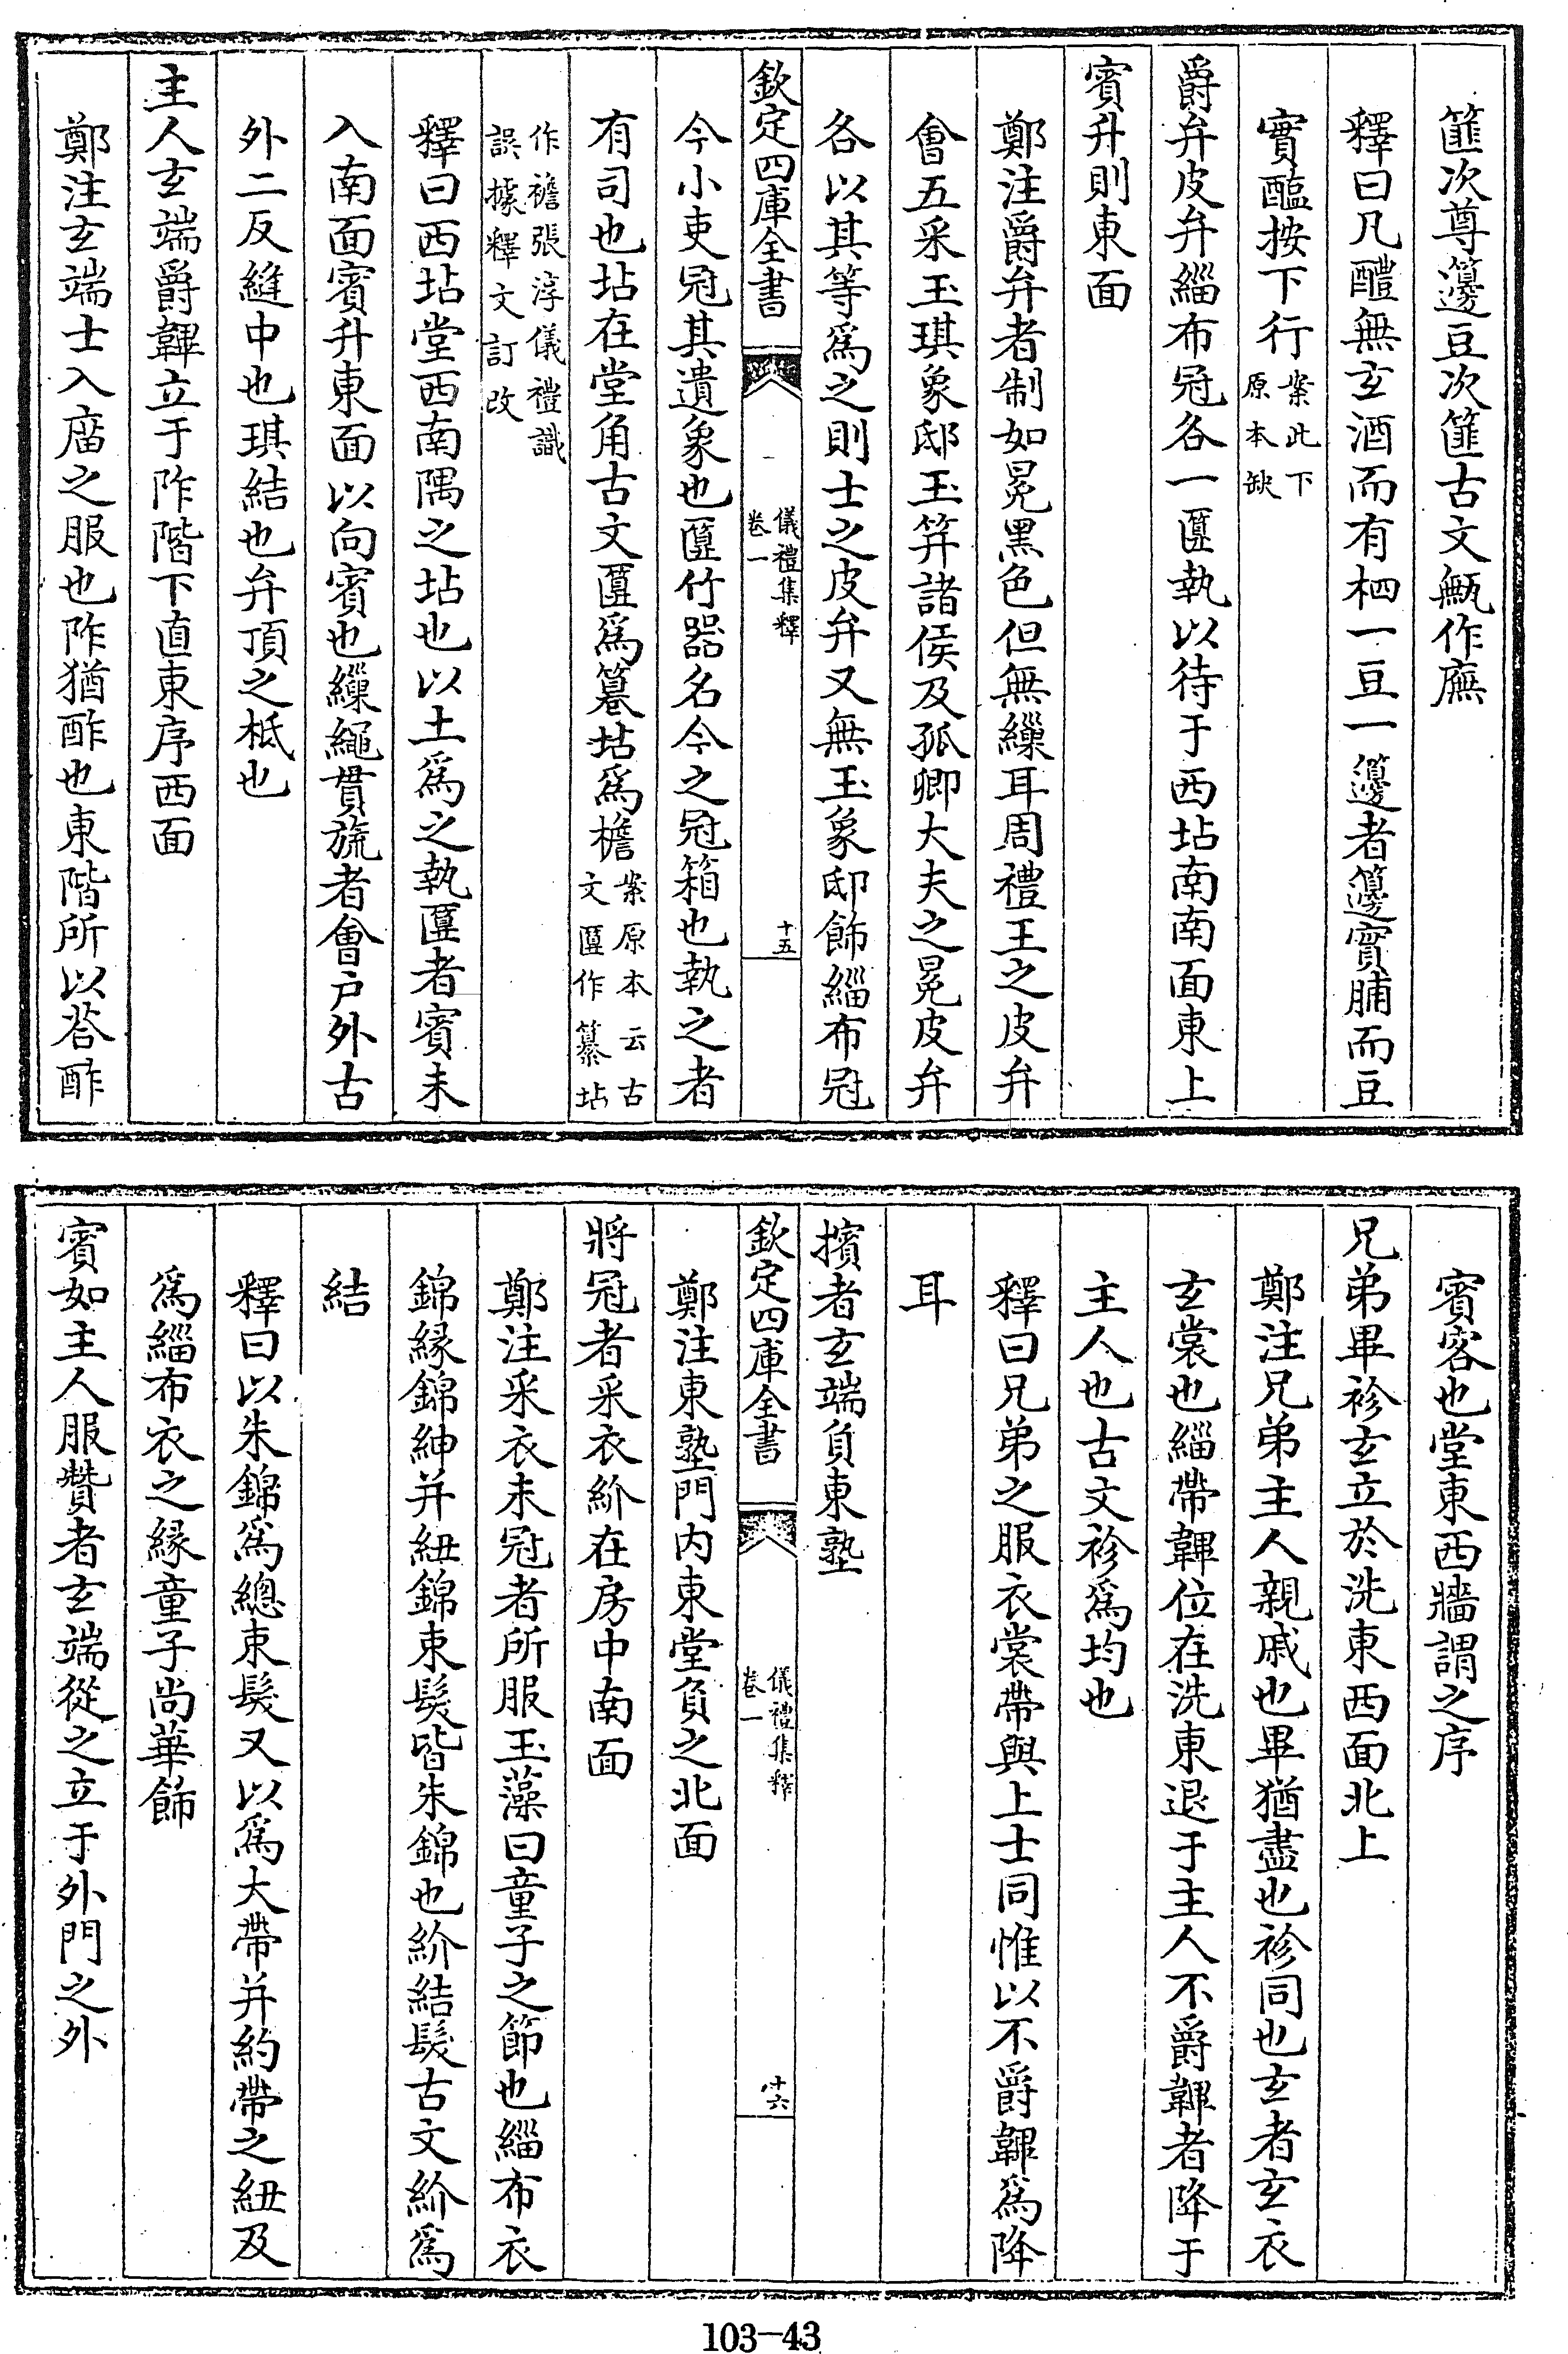 篚次尊籩豆次篚古文甒作廡
釋曰凡醴無玄酒而有柶一豆一籩者籩實脯而豆
實醢按下行案此下原本缺
爵弁皮弁緇布冠各一匴執以待于西坫南南面東上
賓升則東面
鄭注爵弁者制如冕黑色但無繅耳周禮王之皮弁
會五采玉琪象邸玉笄諸侯及孤卿大夫之冕皮弁
各以其等為之則士之皮弁又無玉象邸飾緇布冠
欽定四庫全書
儀禮集釋
卷一
十五
今小吏冠其遺象也匴竹器名今之冠箱也執之者
有司也坫在堂角古文匴為篹坫為檐案原本云古文匴作纂坫
作襜張淳儀禮識誤據釋文訂改
釋曰西坫堂西南隅之坫也以土為之執匴者賓未
入南面賓升東面以向賓也繅繩貫旒者會戶外古
外二反縫中也琪結也弁頂之柢也
主人玄端爵韠立于阼階下直東序西面
鄭注玄端士入廟之服也阼猶酢也東階所以荅酢
賓客也堂東西牆謂之序
兄弟畢袗玄立於洗東西面北上
鄭注兄弟主人親戚也畢猶盡也袗同也玄者玄衣
玄裳也緇帶韠位在洗東退于主人不爵韠者降于
主人也古文袗為均也
釋曰兄弟之服衣裳帶與上士同惟以不爵韠為降
耳
擯者玄端負東塾
欽定四庫全書
儀禮集釋
卷一
十六
鄭注東塾門內東堂負之北面
將冠者采衣紒在房中南面
鄭注采衣未冠者所服玉藻曰童子之節也緇布衣
錦緣錦紳并紐錦束髮皆朱錦也紒結髮古文紒為
結
釋曰以朱錦為總束髮又以為大帶并約帶之紐及
為緇布衣之緣童子尚華飾
賓如主人服贊者玄端從之立于外門之外
103-43